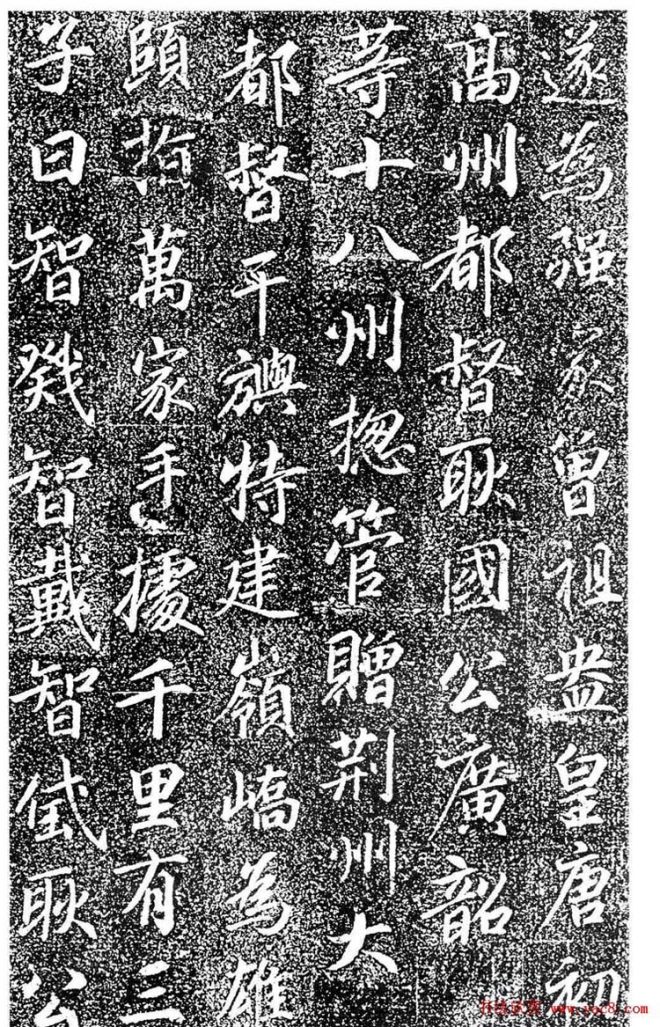 遂為強家曾祖盎皇唐初
高州都督耿國公廣韶
等十八州揔管贈荆州大
都督平輿特建嶺嶠為雄
頤指萬家手據千里有三
子曰智戣智戴智彧耿公
www.yac8.com